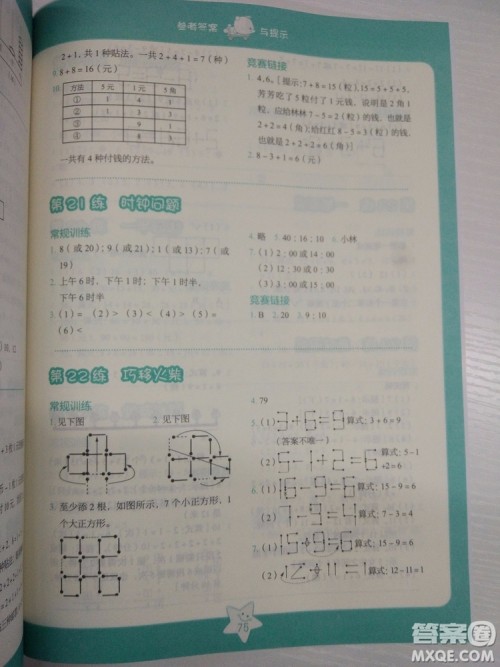 参考答案 与提示
2+1,共1种贴法。一共2+4+1=7(种)
8+8=16(元)
方法 5元 1元 5角
① 1 4
② 1 3
③ 8
④
一共有4种付钱的方法。
竞赛链接
1. 4,6。[提示:7+8=15(粒),15=5+5+5,
芳芳吃了5粒付了1元钱,说明是2角1
粒,应给林林7-5=2(粒)的钱,也就是
2+2=4(角);给红红8-5=3(粒)的钱,
也就是2+2+2=6(角)]
2. 8-3+1=6(元)
第21练 时钟问题
常规训练
1. 8(或20);9(或21);1(或13);7(或
19)
2. 上午6时,下午1时,下午1时半,
下午6时半
3. (1)= (2)> (3)< (4)> (5)=
(6)<
4. 略 5. 40;16;10 6. 小林
7. (1)2:00或14:00
(2)12:00或0:00
(3)3:00或15:00
竞赛链接
1. B 2. 20 3. 9;10
第22练 巧移火柴
常规训练
1. 见下图 2. 见下图
3. 至少添2根,如图所示,7个小正方形,1
个大正方形。
4. 79
(1) 3+6=9 算式:3+6=9
(答案不唯一)
(2) 5-1+2=6 算式:5-1
+2=6
(1) 15-9=6 算式:15-9=6
(2) 7-3=4 算式:7-3=4
(1) 15-9=6 算式:15-9=6
(2) 12-11=1 算式:12-11=1
76
答案圈
MXQE.COM